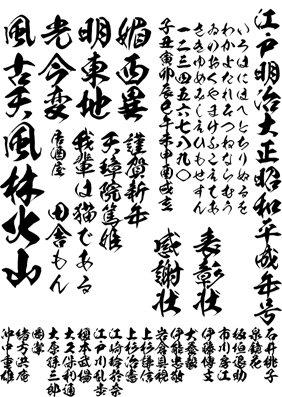 江戸明治大正昭和平成年号
いろはにほへとちりぬるを
わかよたれそつねならむう
ゐのおくやまけふこえてあ
さきゆめみしゑひもせす
一二三四五六七八九〇
子丑寅卯辰巳午未申酉戌亥
表彰状
感謝状
媚西異
明東地
光今変
風古天
謹賀新年
天璋院篤姫
我輩は猫である
居酒屋
田舎もん
風林火山
石井桃子
泉鏡花
板垣退助
市川房江
伊藤博文
犬養毅
伊能忠敬
岩倉具視
上杉謙信
上杉治憲
江崎玲於奈
江戸川乱歩
榎本武揚
大久保利通
大原孫三郎
岡潔
緒方洪庵
沖中重雄